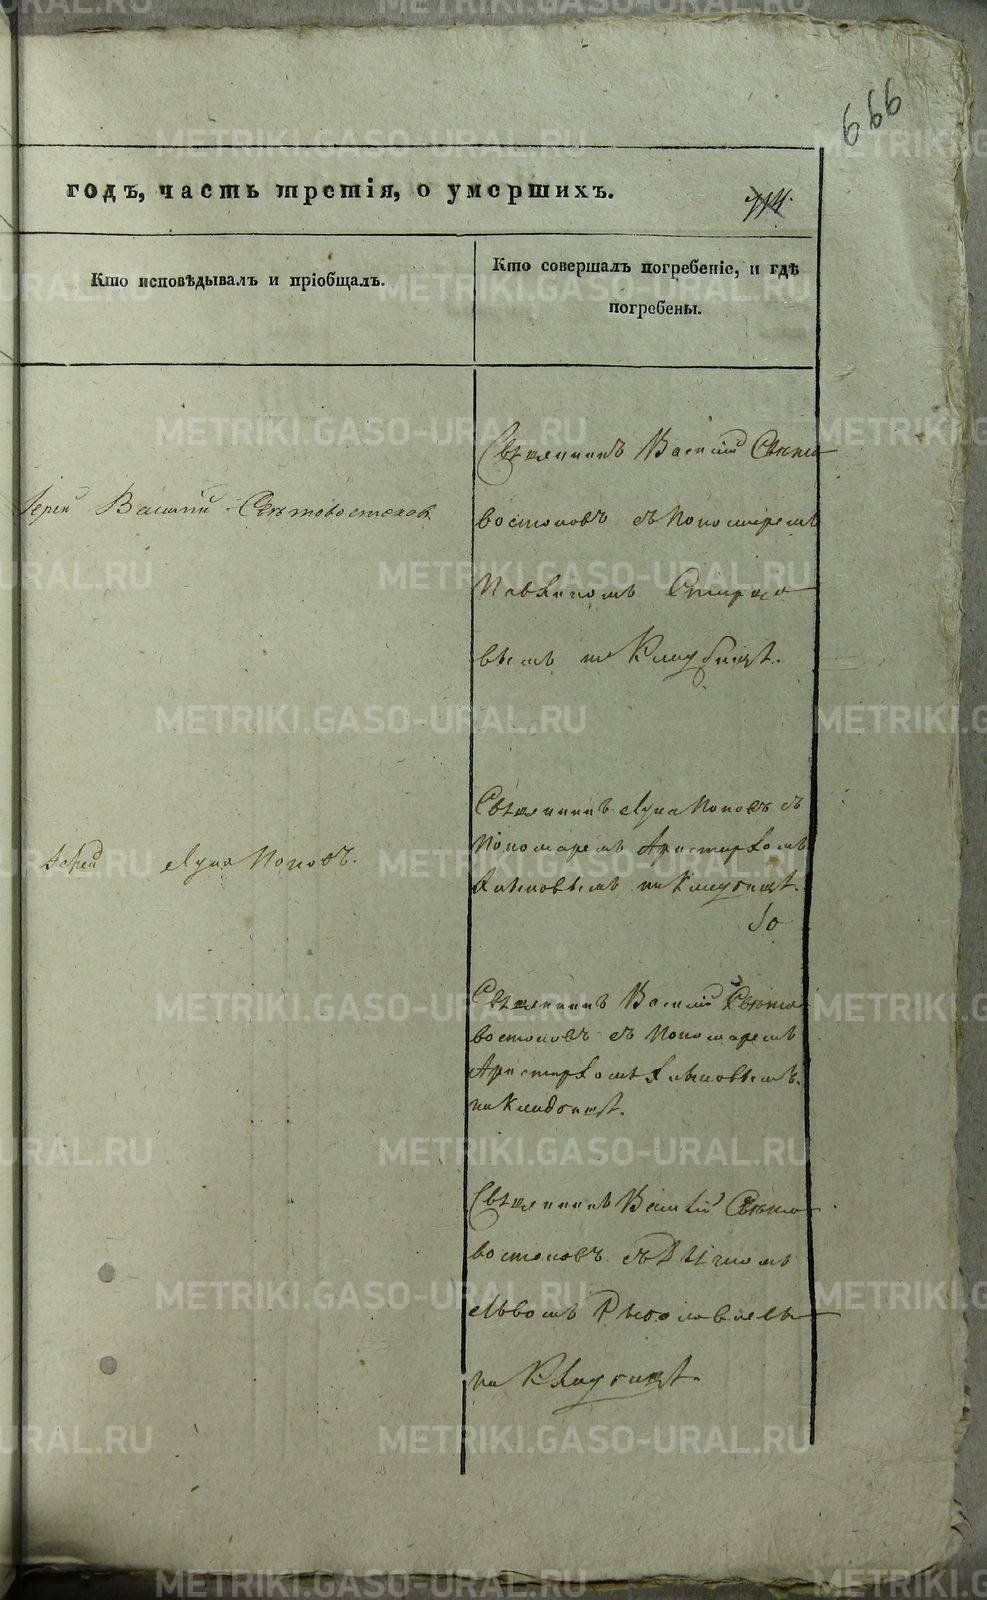 666
годъ, часть третія, о умершихъ.
114.
Кто исповѣдывалъ и пріобщалъ.
Кто совершалъ погребеніе, и гдѣ
погребены.
Священникъ Василій Свѣто
востоковъ съ Пономаремъ
на Кладбищѣ.
Іерей Василий Свѣтовостоковъ.
Священникъ Лука Поповъ съ
Пономаремъ Аристархомъ
на Кладбищѣ.
Іерей Лука Поповъ.
Священникъ Василій Свѣто
востоковъ съ Пономаремъ
Аристархомъ
на Кладбищѣ.
Священникъ Василій Свѣто
востоковъ съ Дьячкомъ
на Кладбищѣ.
METRIKI.GASO-URAL.RU